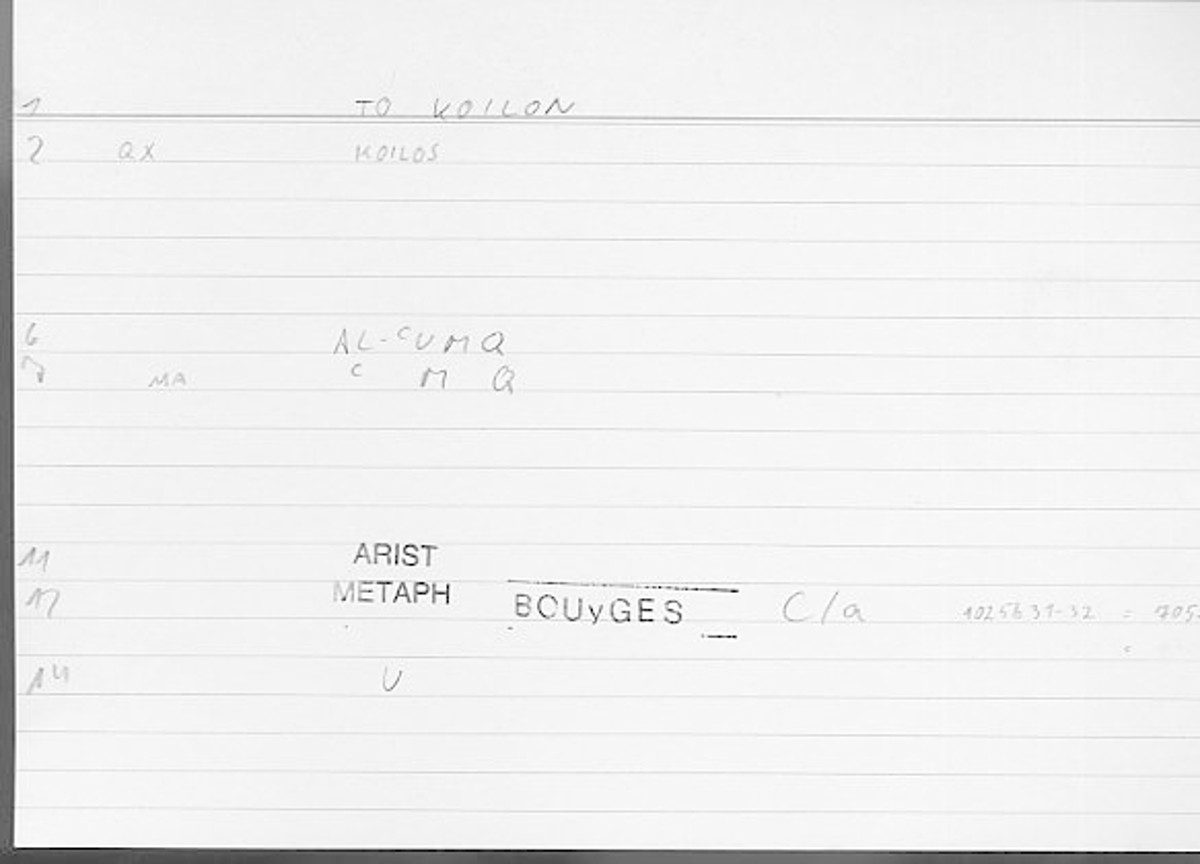 1 TO KOILON
2 QX KOILOS
6 AL-ᶜUMQ
7 MA ᶜ M Q
11 ARIST
12 METAPH BOUyGES C/a 1025b31-32 = 705.
14 U